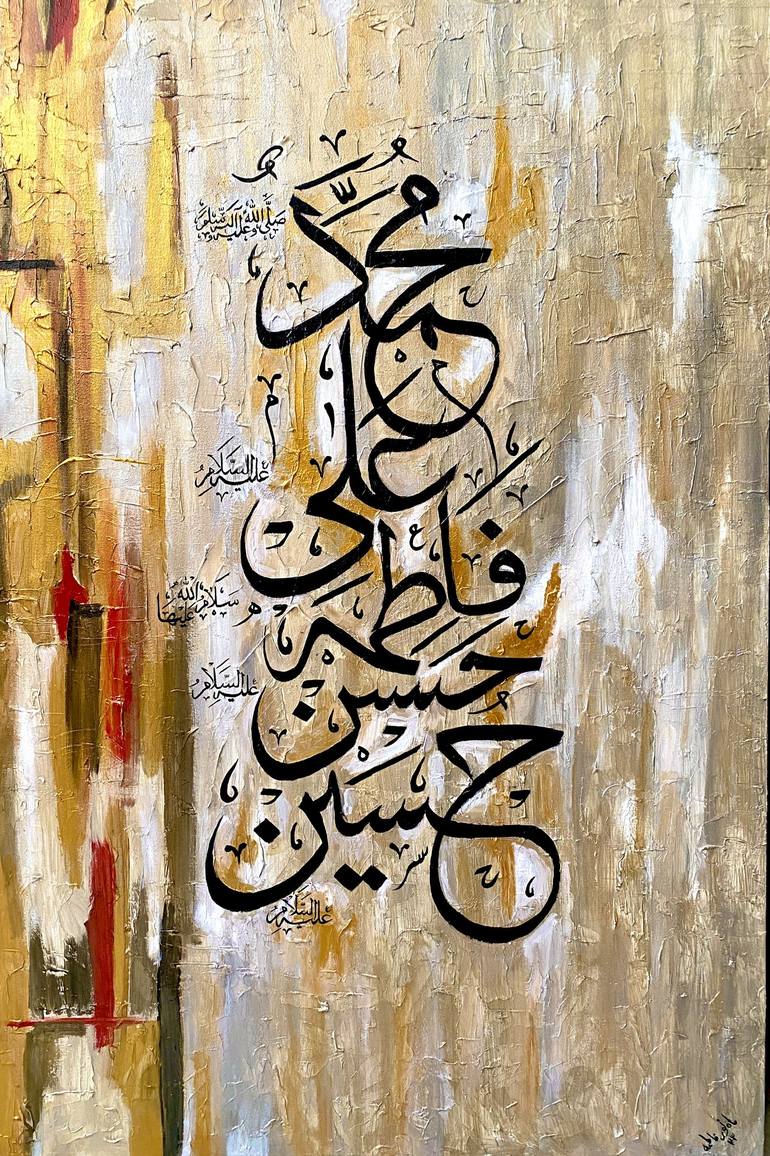 مُحَمَّد
صَلَّى اللهُ عَلَيْهِ وَآلِهِ وَسَلَّمَ
عَلي
عَلَيْهِ السَّلَامُ
فَاطِمَه
سَلَامُ اللهِ عَلَيْهَا
حَسَن
عَلَيْهِ السَّلَامُ
حُسَين
عَلَيْهِ السَّلَامُ